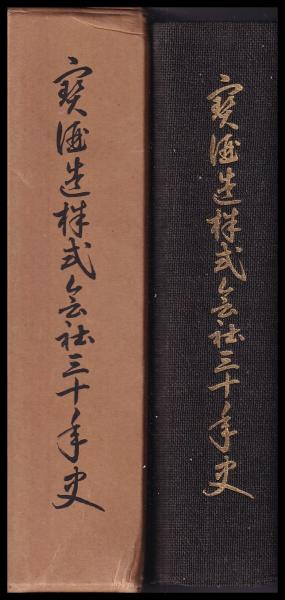 寳酒造株式会社三十年史
寳酒造株式会社三十年史